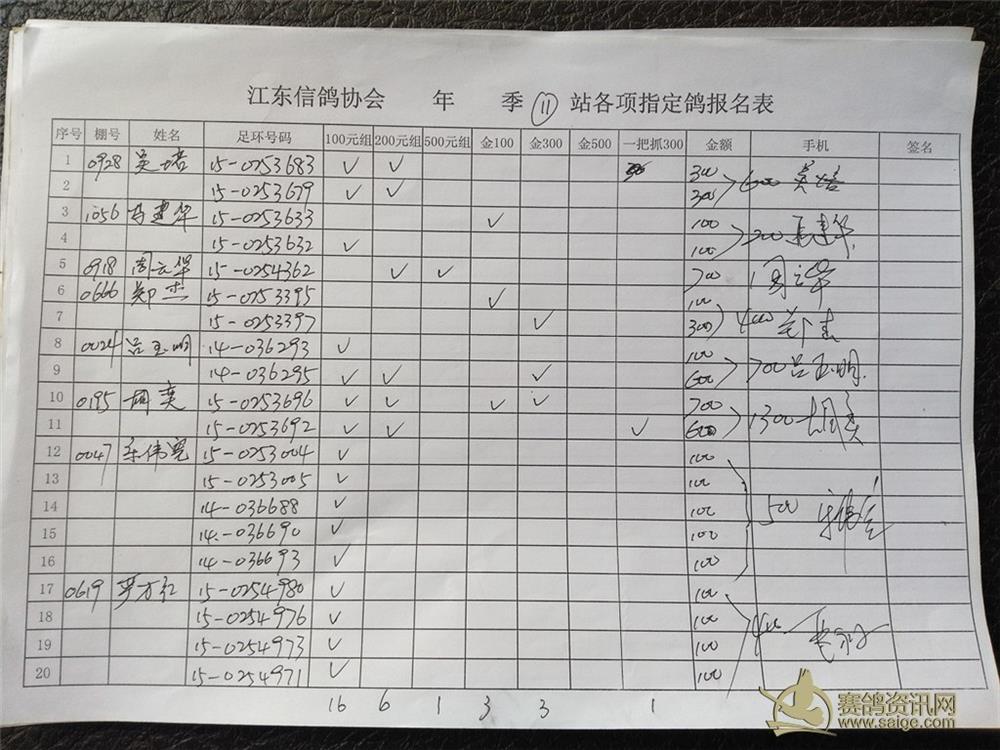 江东信鸽协会 年 季 11 站各项指定鸽报名表
序号 棚号 姓名 足环号码 100元组 200元组 500元组 金100 金300 金500 一把抓300 金额 手机 签名
1 0928 吴培 15-0253683 ✓ ✓ 300 600 吴培
2 15-0253679 ✓ ✓ 300
3 1056 马建华 15-0253633 ✓ 100 200 马建华
4 15-0253632 ✓ 100
5 0918 周云华 15-0254362 ✓ ✓ 700 周云华
6 0666 郑杰 15-0253395 ✓ 100 400 郑杰
7 15-0253397 ✓ 300
8 0024 吕玉明 14-036293 ✓ 100 700 吕玉明
9 14-036295 ✓ ✓ ✓ 600
10 0195 胡奕 15-0253696 ✓ ✓ ✓ ✓ 700 1300 胡奕
11 15-0253692 ✓ ✓ ✓ 600
12 0047 15-0253004 ✓ 100
13 15-0253005 ✓ 100
14 14-036688 ✓ 100 500
15 14-036690 ✓ 100
16 14-036693 ✓ 100
17 0619 15-0254980 ✓ 100
18 15-0254976 ✓ 100 400
19 15-0254973 ✓ 100
20 15-0254971 ✓ 100
16 6 1 3 3 1
赛鸽资讯网
www.saige.com